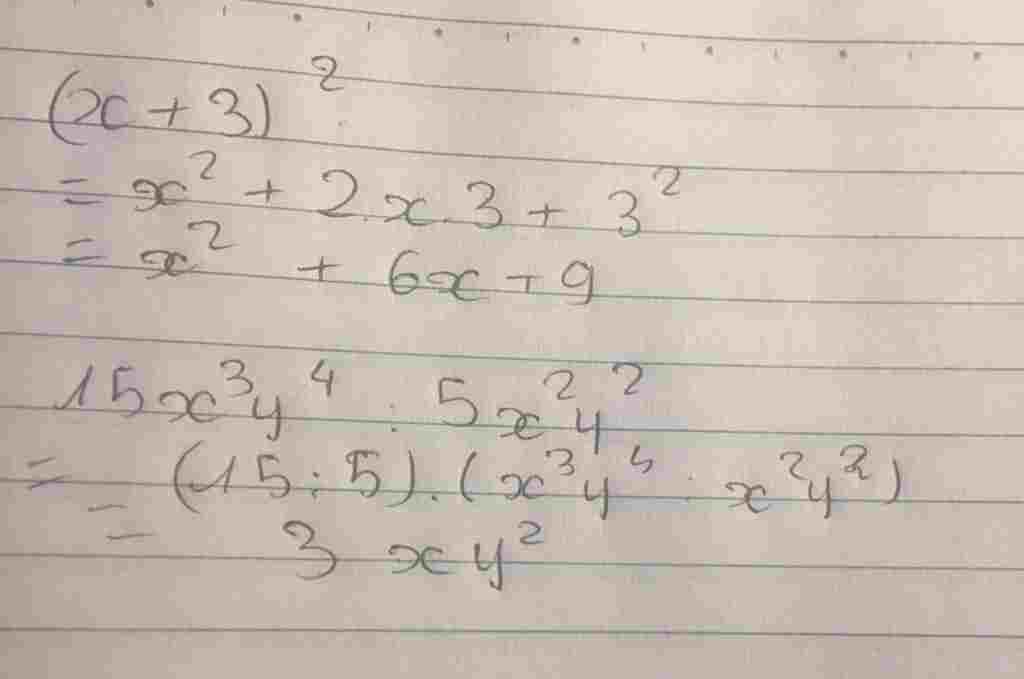 (x + 3)²
= x² + 2.x.3 + 3²
= x² + 6x + 9
15x³y⁴ : 5x²y²
= (15 : 5).(x³y⁴ : x²y²)
= 3xy²